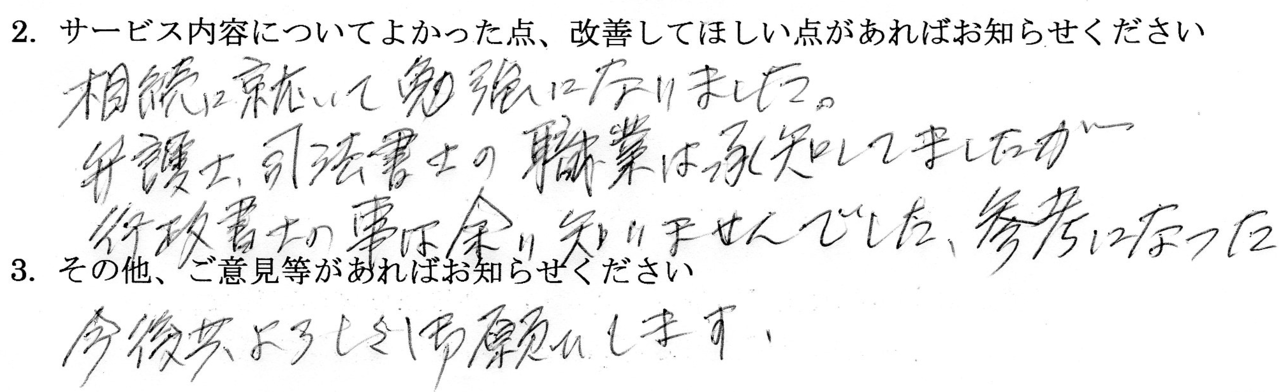 2. サービス内容についてよかった点、改善してほしい点があればお知らせください
相続に就いて勉強になりました。
弁護士、司法書士の職業は承知してましたが
行政書士の事は余り知りませんでした、参考になった
3. その他、ご意見等があればお知らせください
今後共よろしく御願いします、